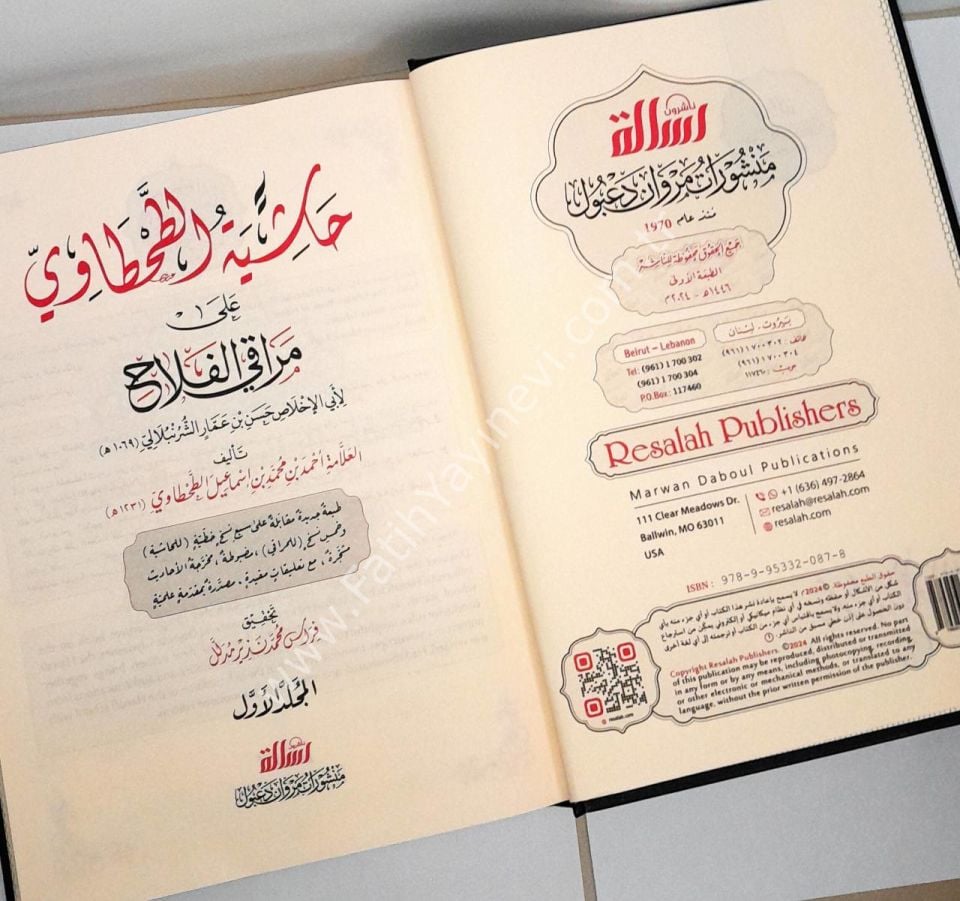 ناشرون
رسالة
مَنْشُورَات مَرْوَان دَعْبُول
منذ عام 1970
جميع الحقوق محفوظة للناشر
الطبعة الأولى
١٤٤٦هـ - ٢٠٢٤م
بيروت - لبنان
هاتف: ٧٠٠٣٠٢ ١ (٩٦١)
٧٠٠٣٠٤ ١ (٩٦١)
ص.ب: ١١٧٤٦٠
Beirut – Lebanon
Tel: (961) 1 700 302
(961) 1 700 304
P.O.Box: 117460
Resalah Publishers
Marwan Daboul Publications
111 Clear Meadows Dr.
Ballwin, MO 63011
USA
+1 (636) 497-2864
resalah@resalah.com
resalah.com
ISBN: 978-9-95332-087-8
حقوق الطبع محفوظة. ©2024 لا يسمح بإعادة نشر هذا الكتاب أو أي جزء منه بأي
شكل من الأشكال أو حفظه ونسخه في أي نظام ميكانيكي أو إلكتروني يمكّن من استرجاع
الكتاب أو أي جزء منه. ولا يسمح باقتباس أي جزء من الكتاب أو ترجمته إلى أي لغة أخرى
دون الحصول على إذن خطي مسبق من الناشر.
Copyright Resalah Publishers. ©2024 All rights reserved. No part
of this publication may be reproduced, distributed or transmitted
in any form or by any means, including photocopying, recording,
or other electronic or mechanical methods, or translated to any
language, without the prior written permission of the publisher.
resalah.com
حَاشِيَةُ الطَّحْطَاوِيّ
عَلَى
مَرَاقِي الفَلَاحِ
لِأَبِي الإِخْلَاصِ حَسَنِ بْنِ عَمَّارِ الشُّرُنْبُلَالِيّ (١٠٦٩هـ)
تأليف
العَلَّامَة أَحْمَد بْن مُحَمَّد بْن إِسْمَاعِيل الطَّحْطَاوِيّ (١٢٣١هـ)
طبعة جديدة مقابلة على سبع نسخ خطّيّة (للحاشية)
وخمس نسخ (للمراقي)، مضبوطة، مخرّجة الأحاديث
منقّحة، مع تعليقات مفيدة. مصدّرة بمقدمة علمية
تحقيق
فراس محمد نذير مدلل
المجلد الأول
ناشرون
رسالة
مَنْشُورَات مَرْوَان دَعْبُول
www.FatihYayinevi.com.tr